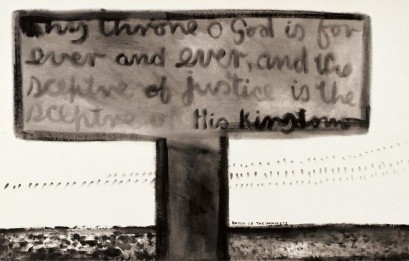 Thy throne O God is for
ever and ever, and the
sceptre of justice is the
sceptre of His Kingdom